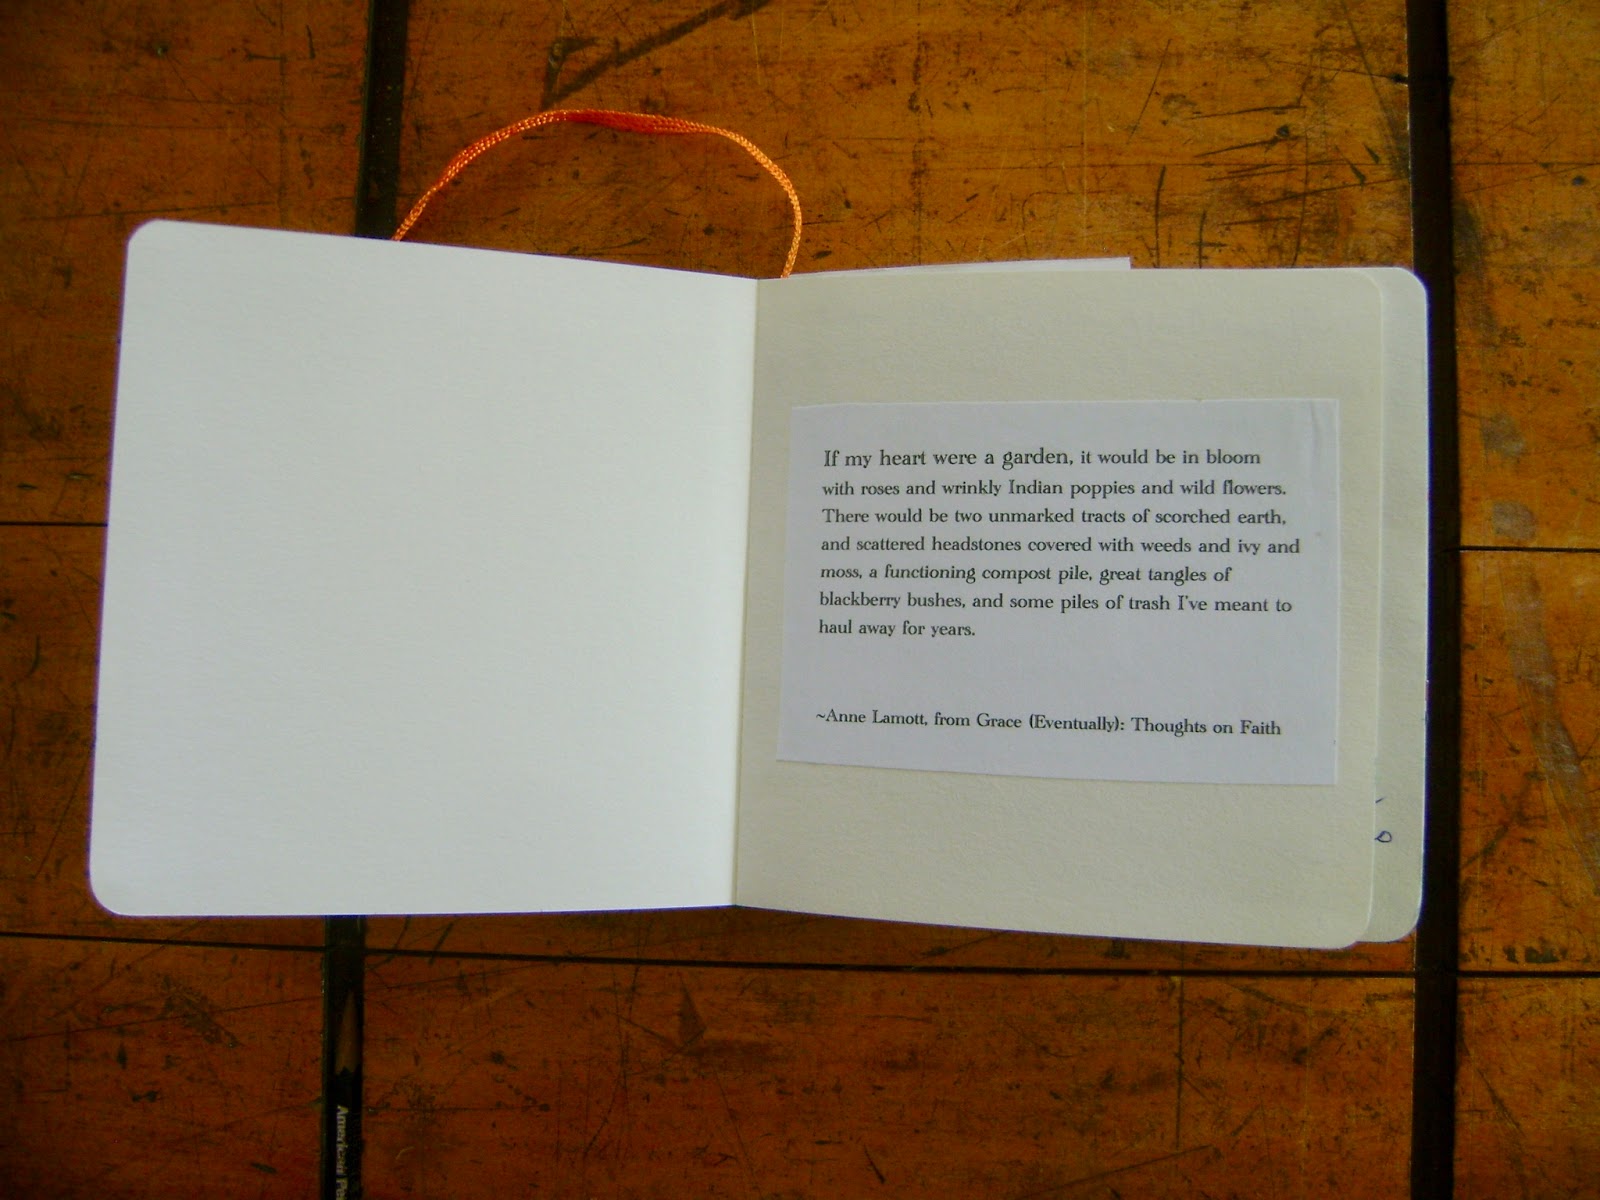 If my heart were a garden, it would be in bloom
with roses and wrinkly Indian poppies and wild flowers.
There would be two unmarked tracts of scorched earth,
and scattered headstones covered with weeds and ivy and
moss, a functioning compost pile, great tangles of
blackberry bushes, and some piles of trash I've meant to
haul away for years.
~Anne Lamott, from Grace (Eventually): Thoughts on Faith
American